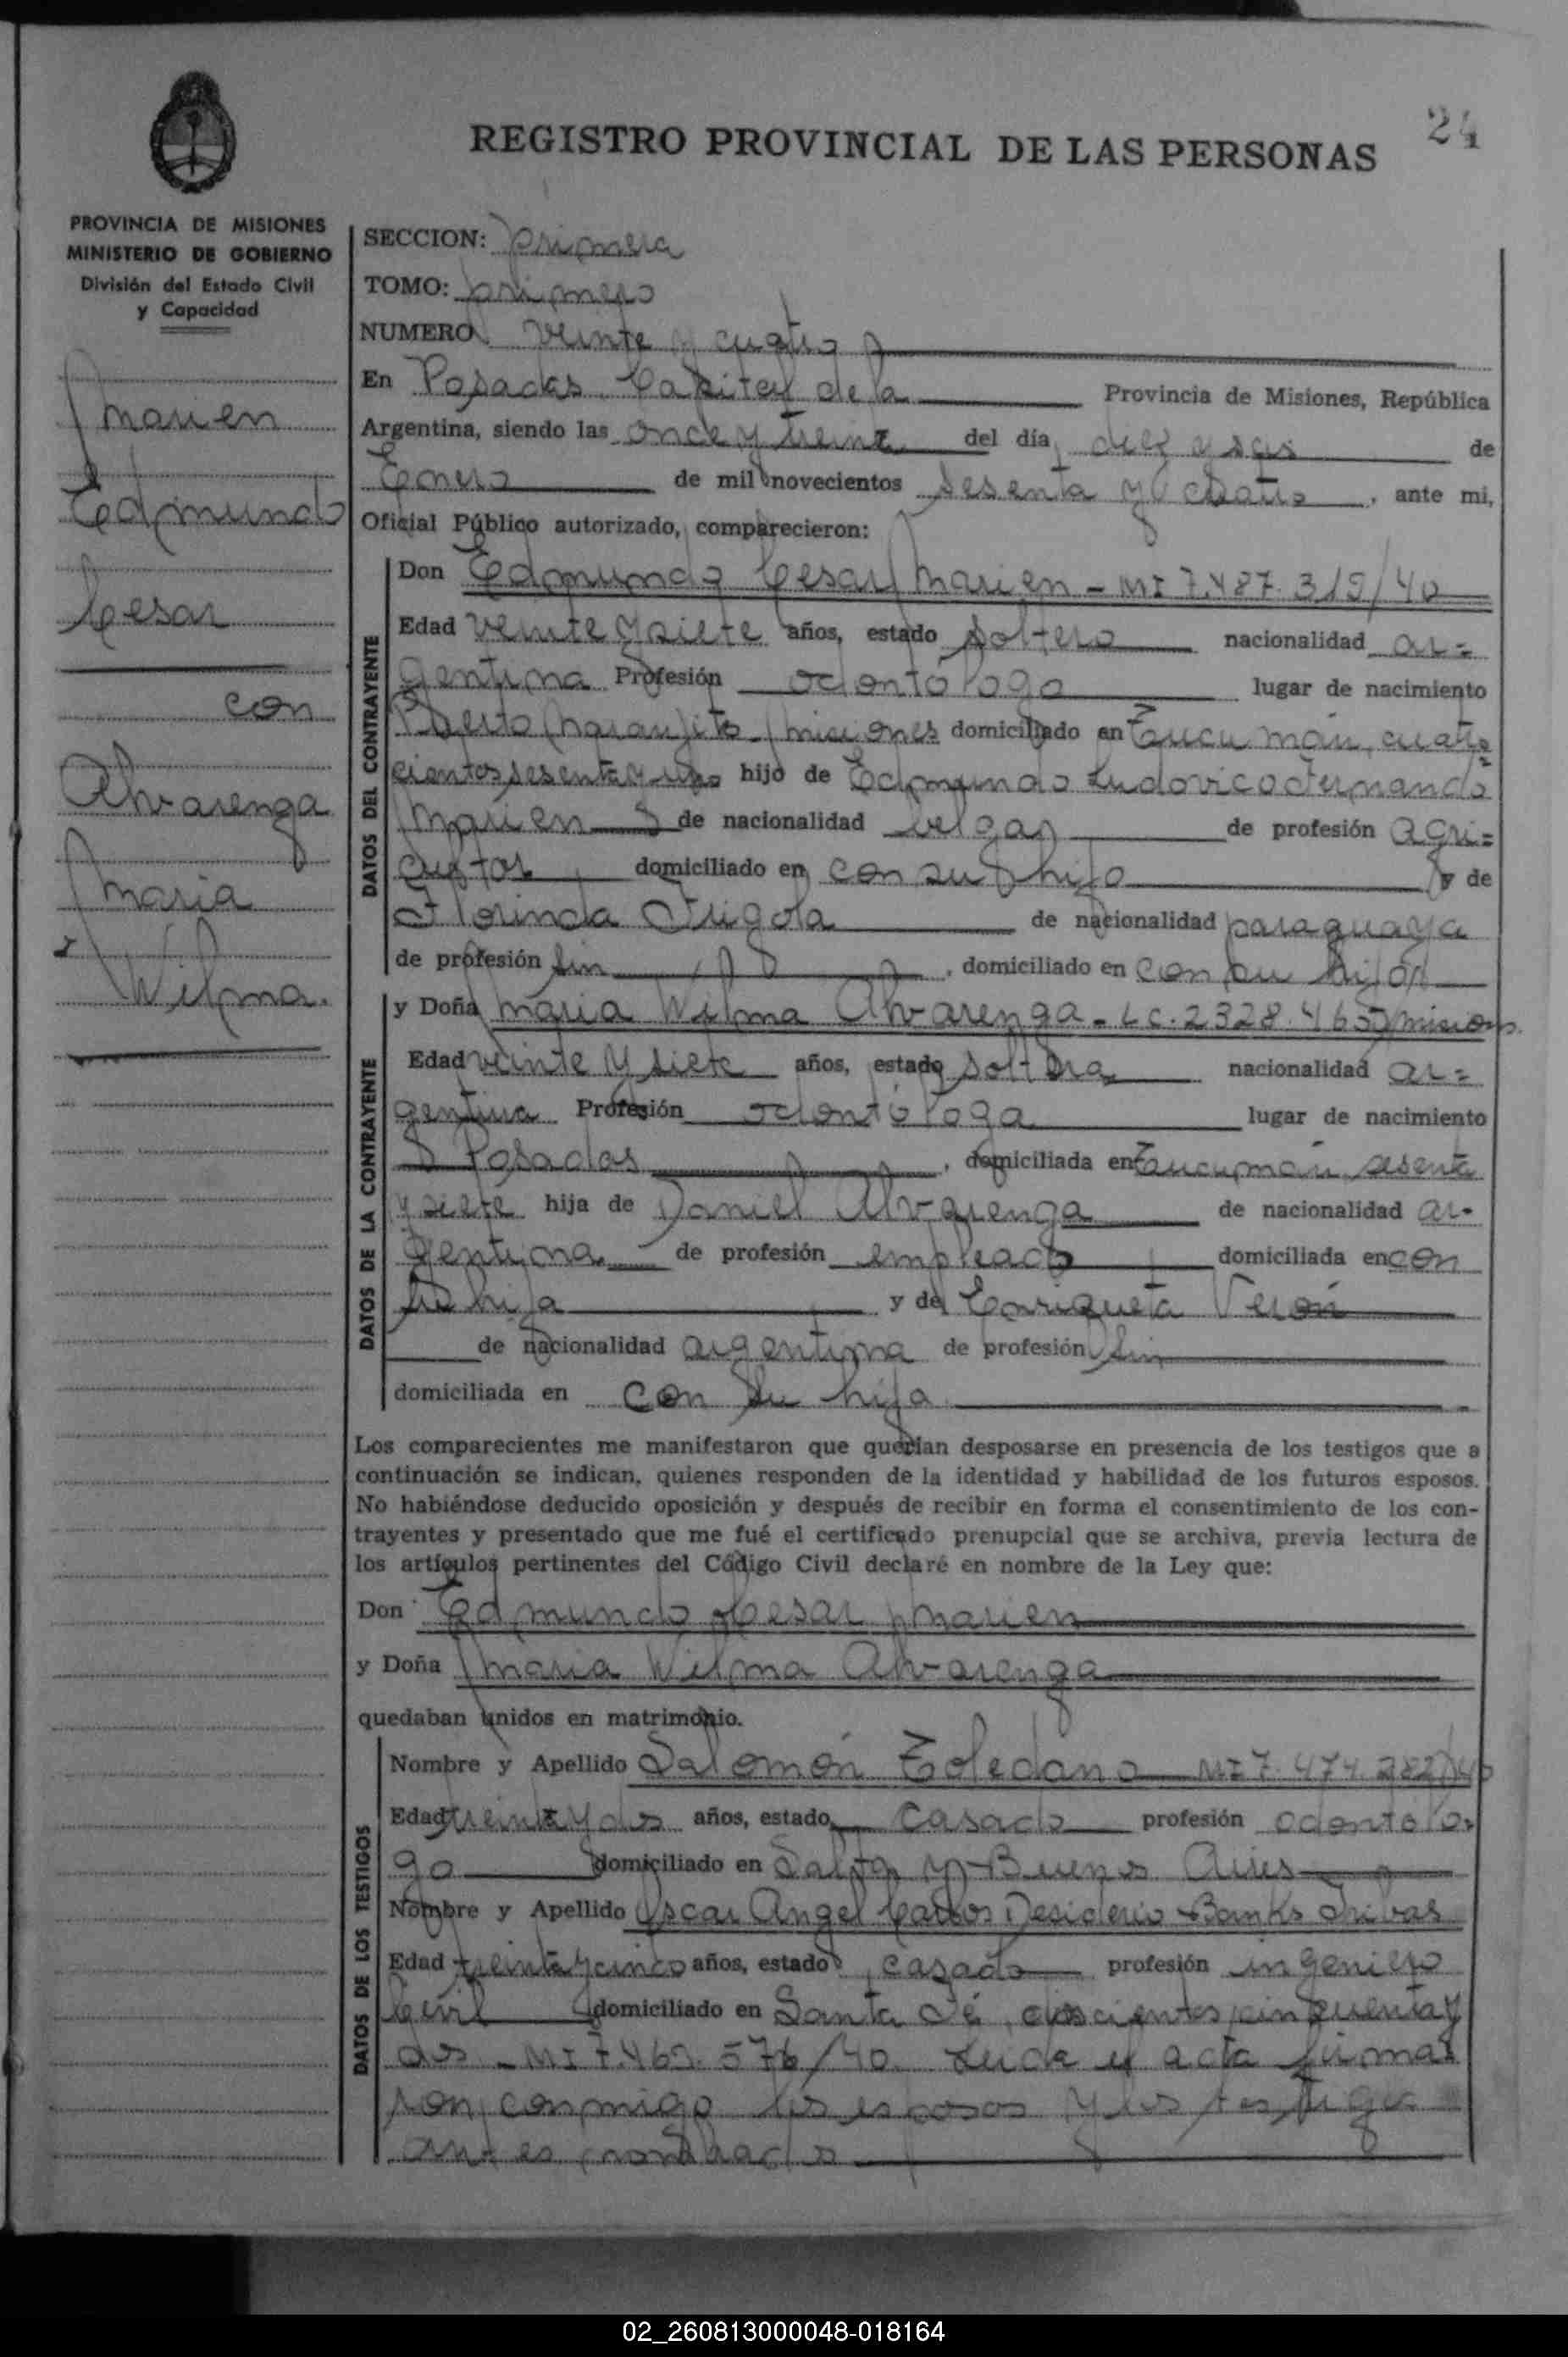 24
REGISTRO PROVINCIAL DE LAS PERSONAS
PROVINCIA DE MISIONES
MINISTERIO DE GOBIERNO
División del Estado Civil
y Capacidad
Marien
Edmundo
Cesar
con
Alvarenga
Maria
Wilma.
SECCION: primera
TOMO: primero
NUMERO veinte y cuatro
En Posadas Capital de la Provincia de Misiones, República
Argentina, siendo las once y treinta del día diez y seis de
Enero de mil novecientos sesenta y cuatro, ante mi,
Oficial Público autorizado, comparecieron:
DATOS DEL CONTRAYENTE
Don Edmundo Cesar Marien - MI 7.487.319/40
Edad veinte y siete años, estado soltero nacionalidad ar=
gentina Profesión odontólogo lugar de nacimiento
Puerto Naranjito Misiones domiciliado en Tucumán, cuatro
cientos sesenta y uno hijo de Edmundo Ludovico Fernando
Marien de nacionalidad belga de profesión agri=
cultor domiciliado en con su hijo y de
Florinda Frigola de nacionalidad paraguaya
de profesión sin, domiciliado en con su hijo
DATOS DE LA CONTRAYENTE
y Doña Maria Wilma Alvarenga - LC. 2328.465 Misiones
Edad veinte y siete años, estado soltera nacionalidad ar=
gentina Profesión odontóloga lugar de nacimiento
Posadas, domiciliada en Tucumán sesenta
y siete hija de Daniel Alvarenga de nacionalidad ar-
gentina de profesión empleado domiciliada en con
su hija y de Enriqueta Verón
de nacionalidad argentina de profesión sin
domiciliada en con su hija
Los comparecientes me manifestaron que querían desposarse en presencia de los testigos que a
continuación se indican, quienes responden de la identidad y habilidad de los futuros esposos.
No habiéndose deducido oposición y después de recibir en forma el consentimiento de los con-
trayentes y presentado que me fué el certificado prenupcial que se archiva, previa lectura de
los artículos pertinentes del Código Civil declaré en nombre de la Ley que:
Don Edmundo Cesar Marien
y Doña Maria Wilma Alvarenga
quedaban unidos en matrimonio.
DATOS DE LOS TESTIGOS
Nombre y Apellido Salomón Toledano MI 7.474.282/40
Edad treinta y dos años, estado casado profesión odontólo-
go domiciliado en Salta y Buenos Aires
Nombre y Apellido Oscar Angel Carlos Desiderio Banks
Edad treinta y cinco años, estado casado profesión ingeniero
Civil domiciliado en Santa Fé, doscientos cincuenta y
dos - MI 7.463.576/40 Leida el acta firma=
ron conmigo los esposos y los testigos
antes nombrados
02_260813000048-018164